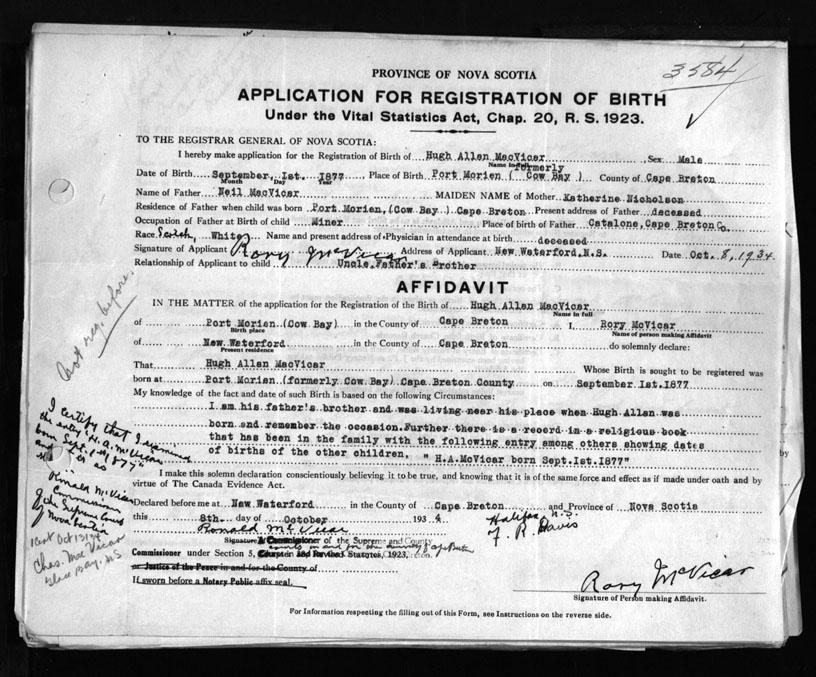 3584
PROVINCE OF NOVA SCOTIA
APPLICATION FOR REGISTRATION OF BIRTH
Under the Vital Statistics Act, Chap. 20, R. S. 1923.
TO THE REGISTRAR GENERAL OF NOVA SCOTIA:
I hereby make application for the Registration of Birth of Hugh Allan MacVicar Sex Male
Name in full formerly
Date of Birth September, 1st. 1877 Place of Birth Port Morien ( Cow Bay ) County of Cape Breton
Month Day Year
Name of Father Neil MacVicar MAIDEN NAME of Mother Katherine Nicholson
Residence of Father when child was born Port Morien,(Cow Bay) Cape Breton Present address of Father deceased
Occupation of Father at Birth of child Miner Place of birth of Father Catalone, Cape Breton Co.
Race Scotch, White Name and present address of Physician in attendance at birth deceased
Signature of Applicant Rory McVicar Address of Applicant New Waterford,N.S. Date Oct. 8, 1934.
Relationship of Applicant to child Uncle,Father's Brother
AFFIDAVIT
IN THE MATTER of the application for the Registration of the Birth of Hugh Allan MacVicar
Name in full
of Port Morien (Cow Bay) in the County of Cape Breton I, Rory McVicar
Birth place Name of person making Affidavit
of New Waterford in the County of Cape Breton do solemnly declare:
Present residence
That Hugh Allan MacVicar Whose Birth is sought to be registered was
born at Port Morien (formerly Cow Bay) Cape Breton County on September 1st.1877
My knowledge of the fact and date of such Birth is based on the following Circumstances:
I am his father's brother and was living near his place when Hugh Allan was
born and remember the occasion.Further there is a record in a religious book
that has been in the family with the following entry among others showing dates
of births of the other children, " H.A.McVicar born Sept.1st.1877"
by
I make this solemn declaration conscientiously believing it to be true, and knowing that it is of the same force and effect as if made under oath and by
virtue of The Canada Evidence Act.
Declared before me at New Waterford in the County of Cape Breton and Province of Nova Scotia
this 8th. day of October 1934 Halifax N.S.
Ronald McVicar F. R. Davis
Signature A Commissioner of the Supreme and County
courts in and for the county of Cape Breton
Commissioner under Section 5, Chapter Revised Statutes, 1923,
or Justice of the Peace in and for the County of
If sworn before a Notary Public affix seal.
Rory McVicar
Signature of Person making Affidavit.
For Information respecting the filling out of this Form, see Instructions on the reverse side.
Not reg. before.
I certify that I examined
the entry "H. A. McVicar
born Sept. 1st 1877"
Ronald McVicar
A Commissioner
of the Supreme Court
of Nova Scotia
1 cert Oct 13/34
Chas. MacVicar
Glace Bay. N.S